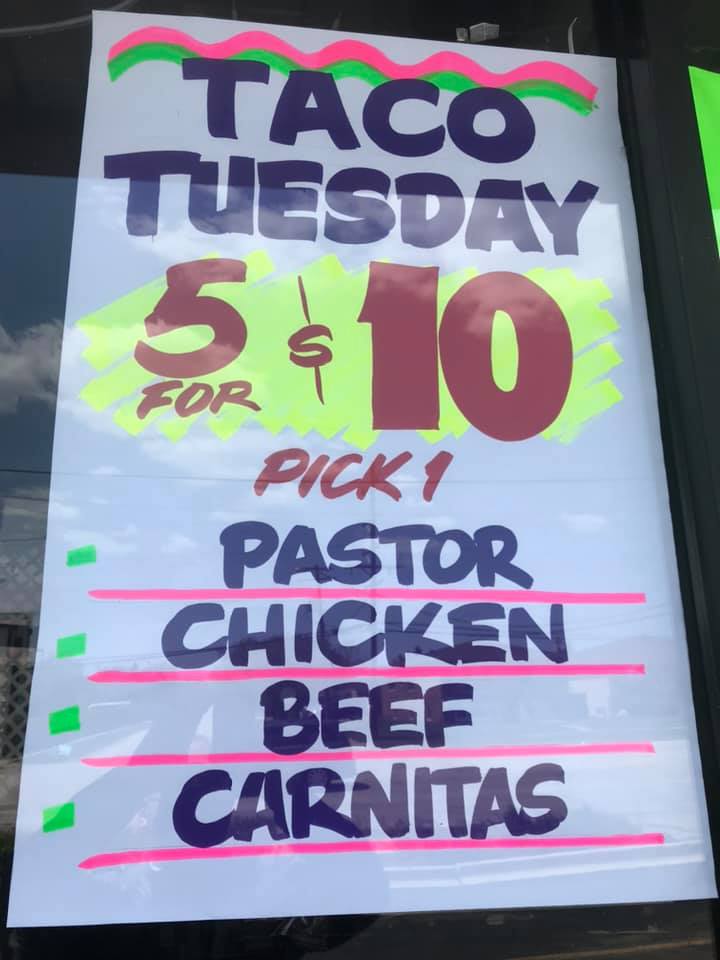 TACO
TUESDAY
5 FOR $ 10
PICK 1
PASTOR
CHICKEN
BEEF
CARNITAS